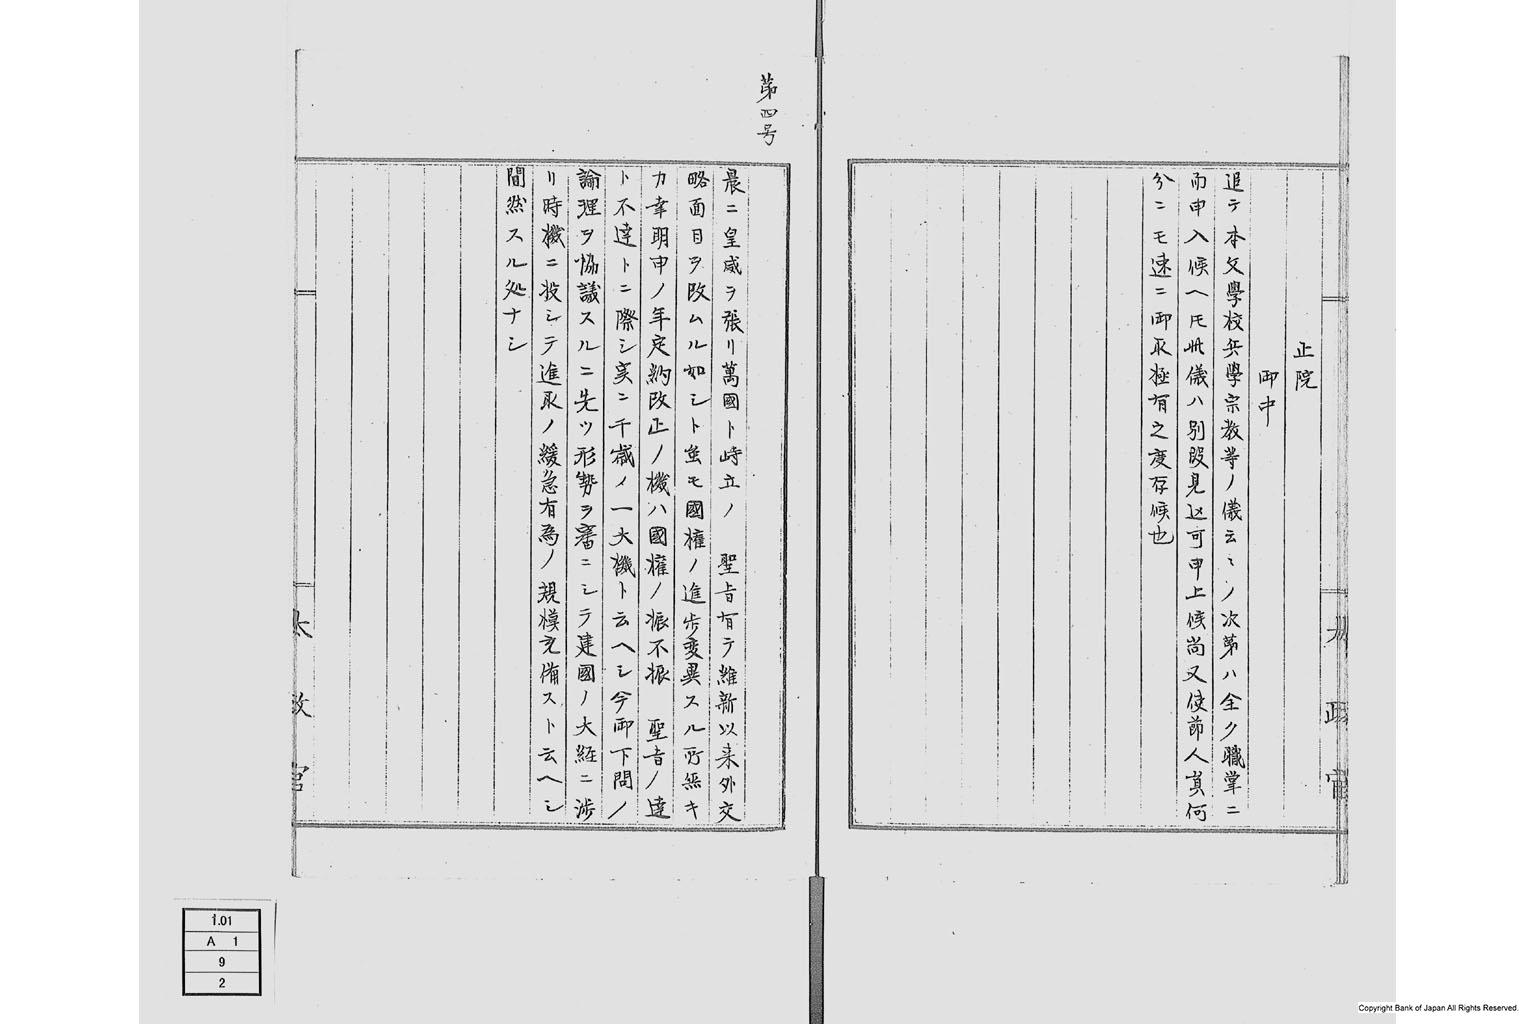 正院
御中
追テ本文學校兵學宗教等ノ儀云々ノ次第ハ全ク職掌ニ
而申入候ヘ𪜈此儀ハ別段見込可申上候尚又使節人員何
分ニモ速ニ御取極有之度存候也
太政官
第四号
晨ニ皇威ヲ張リ萬國ト峙立ノ 聖旨有テ維新以来外交
略面目ヲ改ムル如シト雖モ國權ノ進歩変異スル所無キ
カ幸明申ノ年定約改正ノ機ハ國權ノ振不振 聖旨ノ達
ト不達トニ際シ実ニ千歳ノ一大機ト云ヘシ今御下問ノ
論理ヲ協議スルニ先ツ形勢ヲ審ニシテ建國ノ大経ニ渉
リ時機ニ投シテ進取ノ緩急有為ノ規模充備スト云ヘシ
間然スル処ナシ
太政官
1.01
A 1
9
2
Copyright Bank of Japan All Rights Reserved.